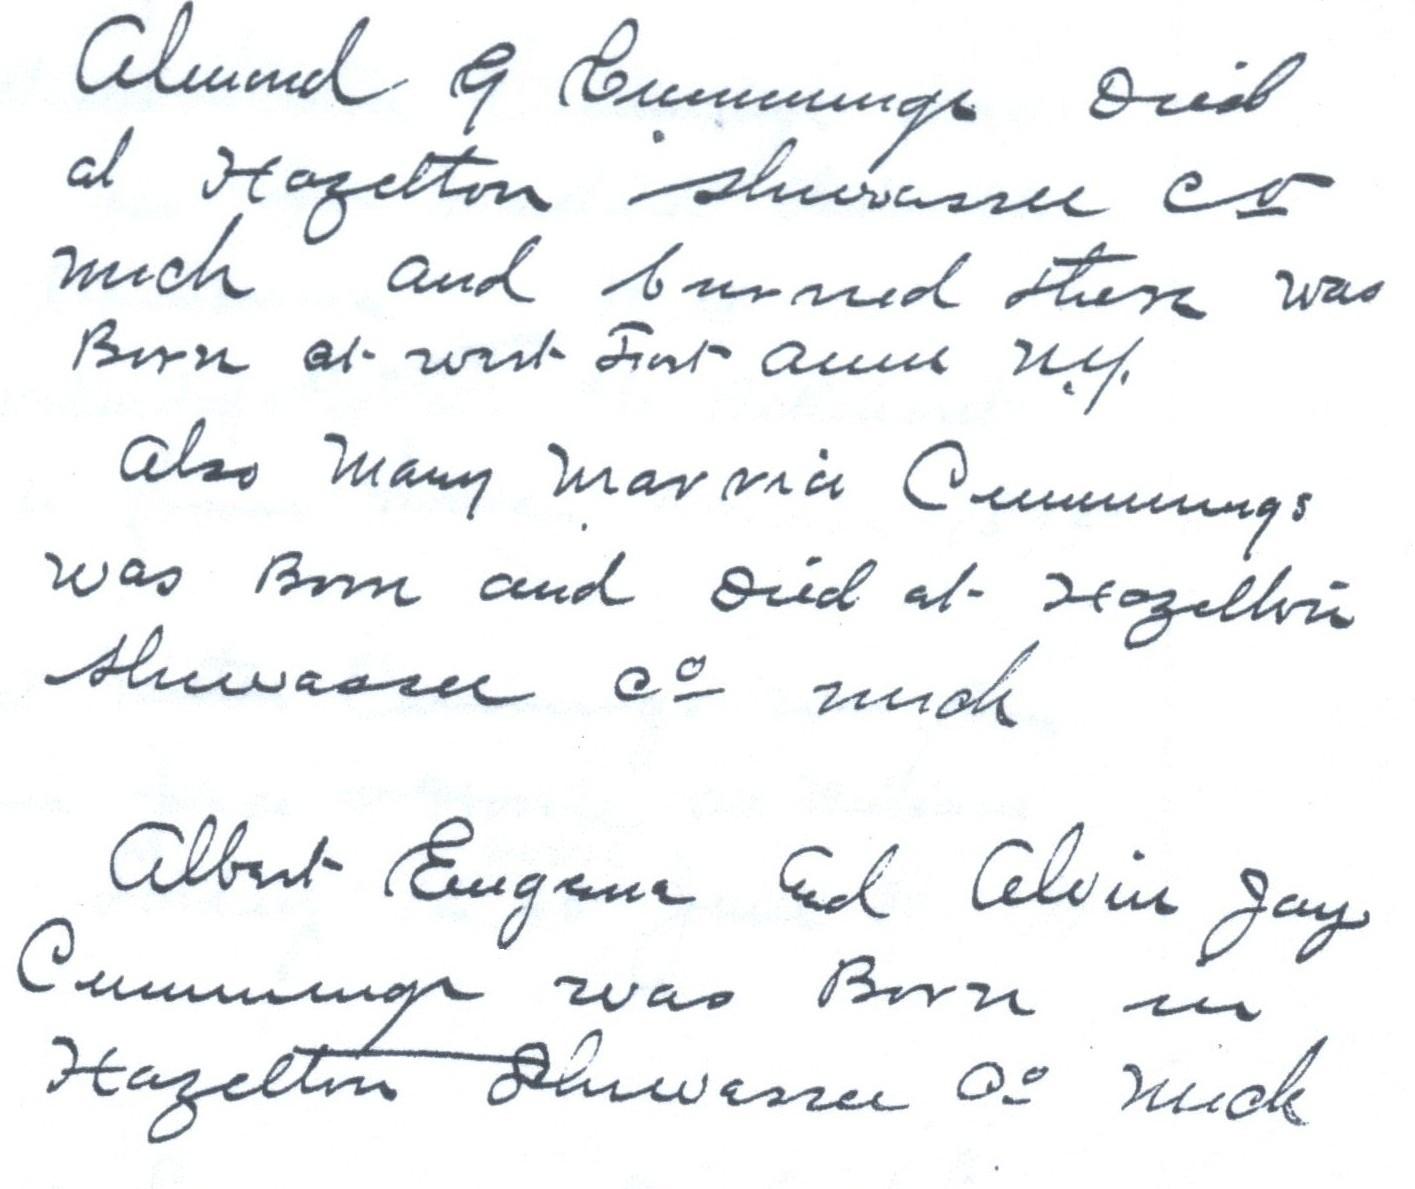 Almond G Cummings Died
at Hazelton Shiwassee Co
Mich and burried there was
Born at west Fort Anne N.Y.
Also Mary Marria Cummings
was Born and Died at Hazelton
Shiwassee Co Mich
Albert Eugene and Alvin Jay
Cummings was Born in
Hazelton Shiwassee Co Mich